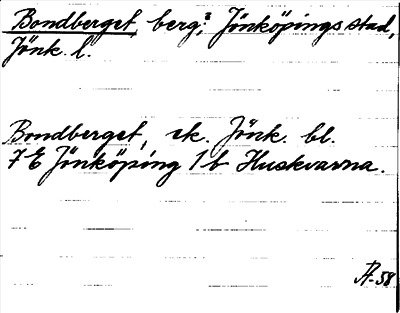 Bondberget, berg, i Jönköpings stad,
Jönk. l.
Bondberget, ek. Jönk. bl.
7 E Jönköping 1b Huskvarna.
Å-58